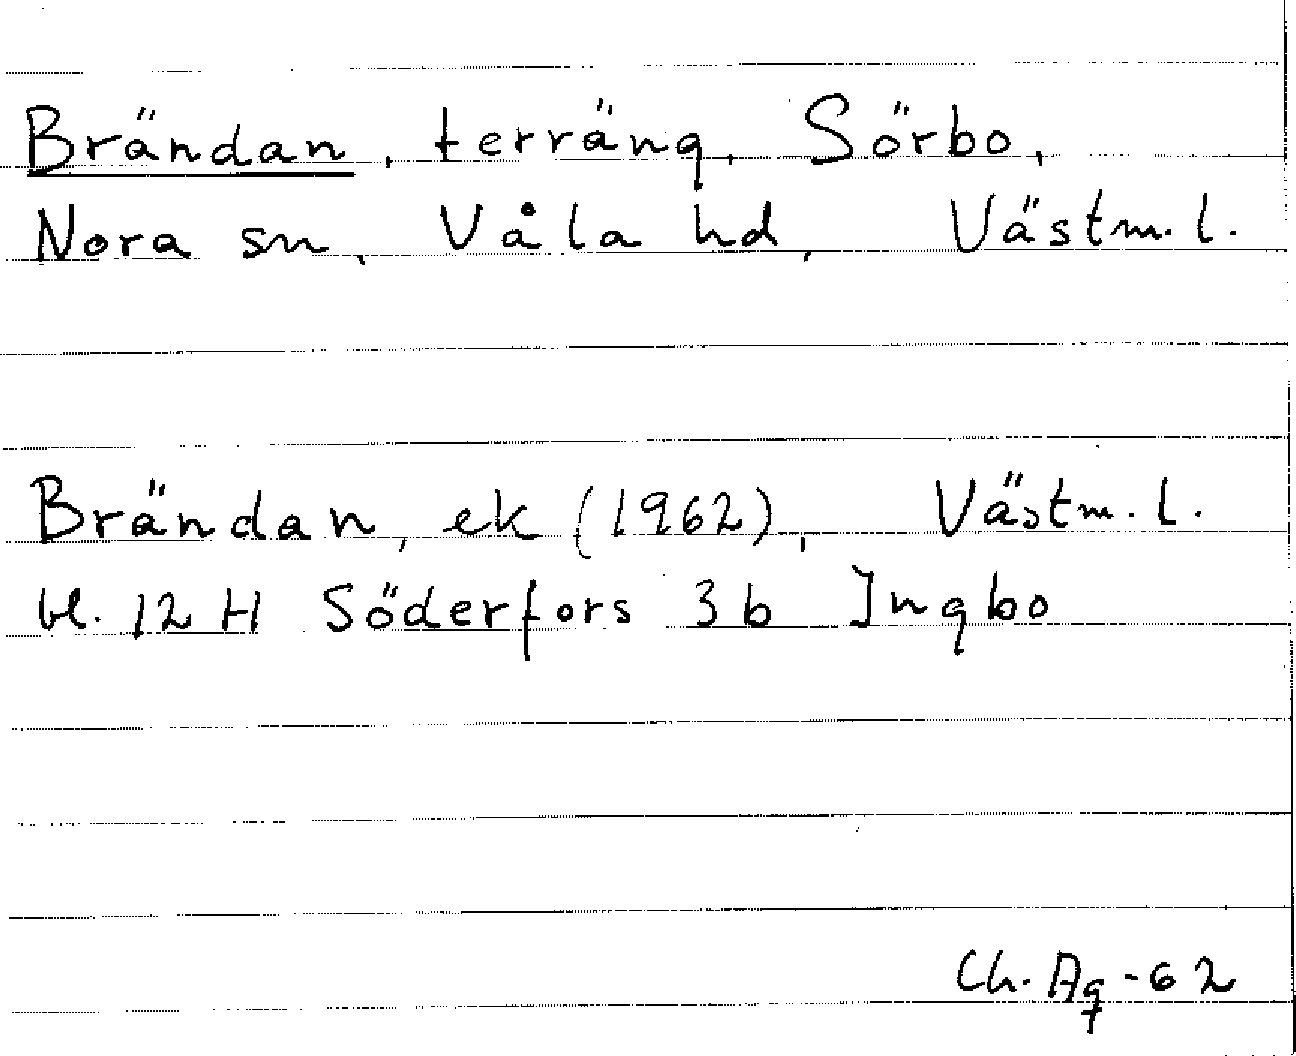 Brändan, terräng, Sörbo,
Nora sn, Våla hd, Västm. l.
Brändan, ek (1962), Västm. l.
bl. 12 H Söderfors 3 b Ingbo
Ch. Ag -62